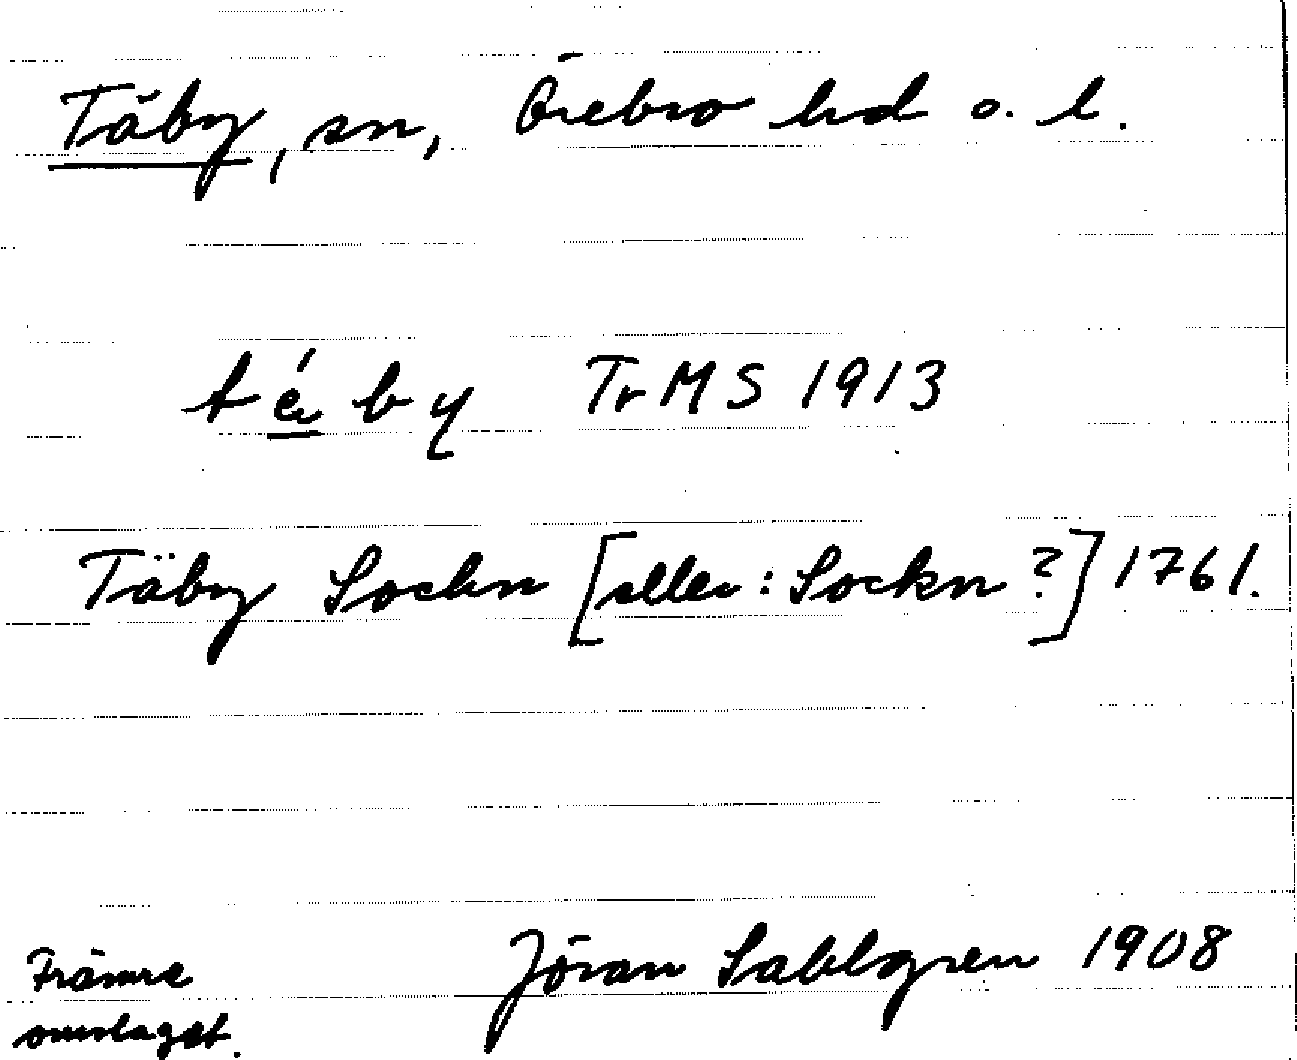 Täby, sn, Örebro hd o. l.
té̱by TrMS 1913
Täby Sochn [eller: Sockn?] 1761.
Främre Jöran Sahlgren 1908
omslaget.